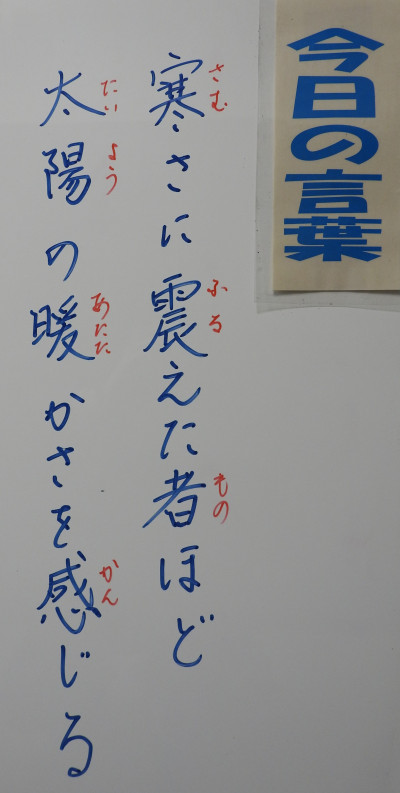 今日の言葉
寒さに震えた者ほど
さむ
ふる
もの
太陽の暖かさを感じる
たい
よう
あたた
かん